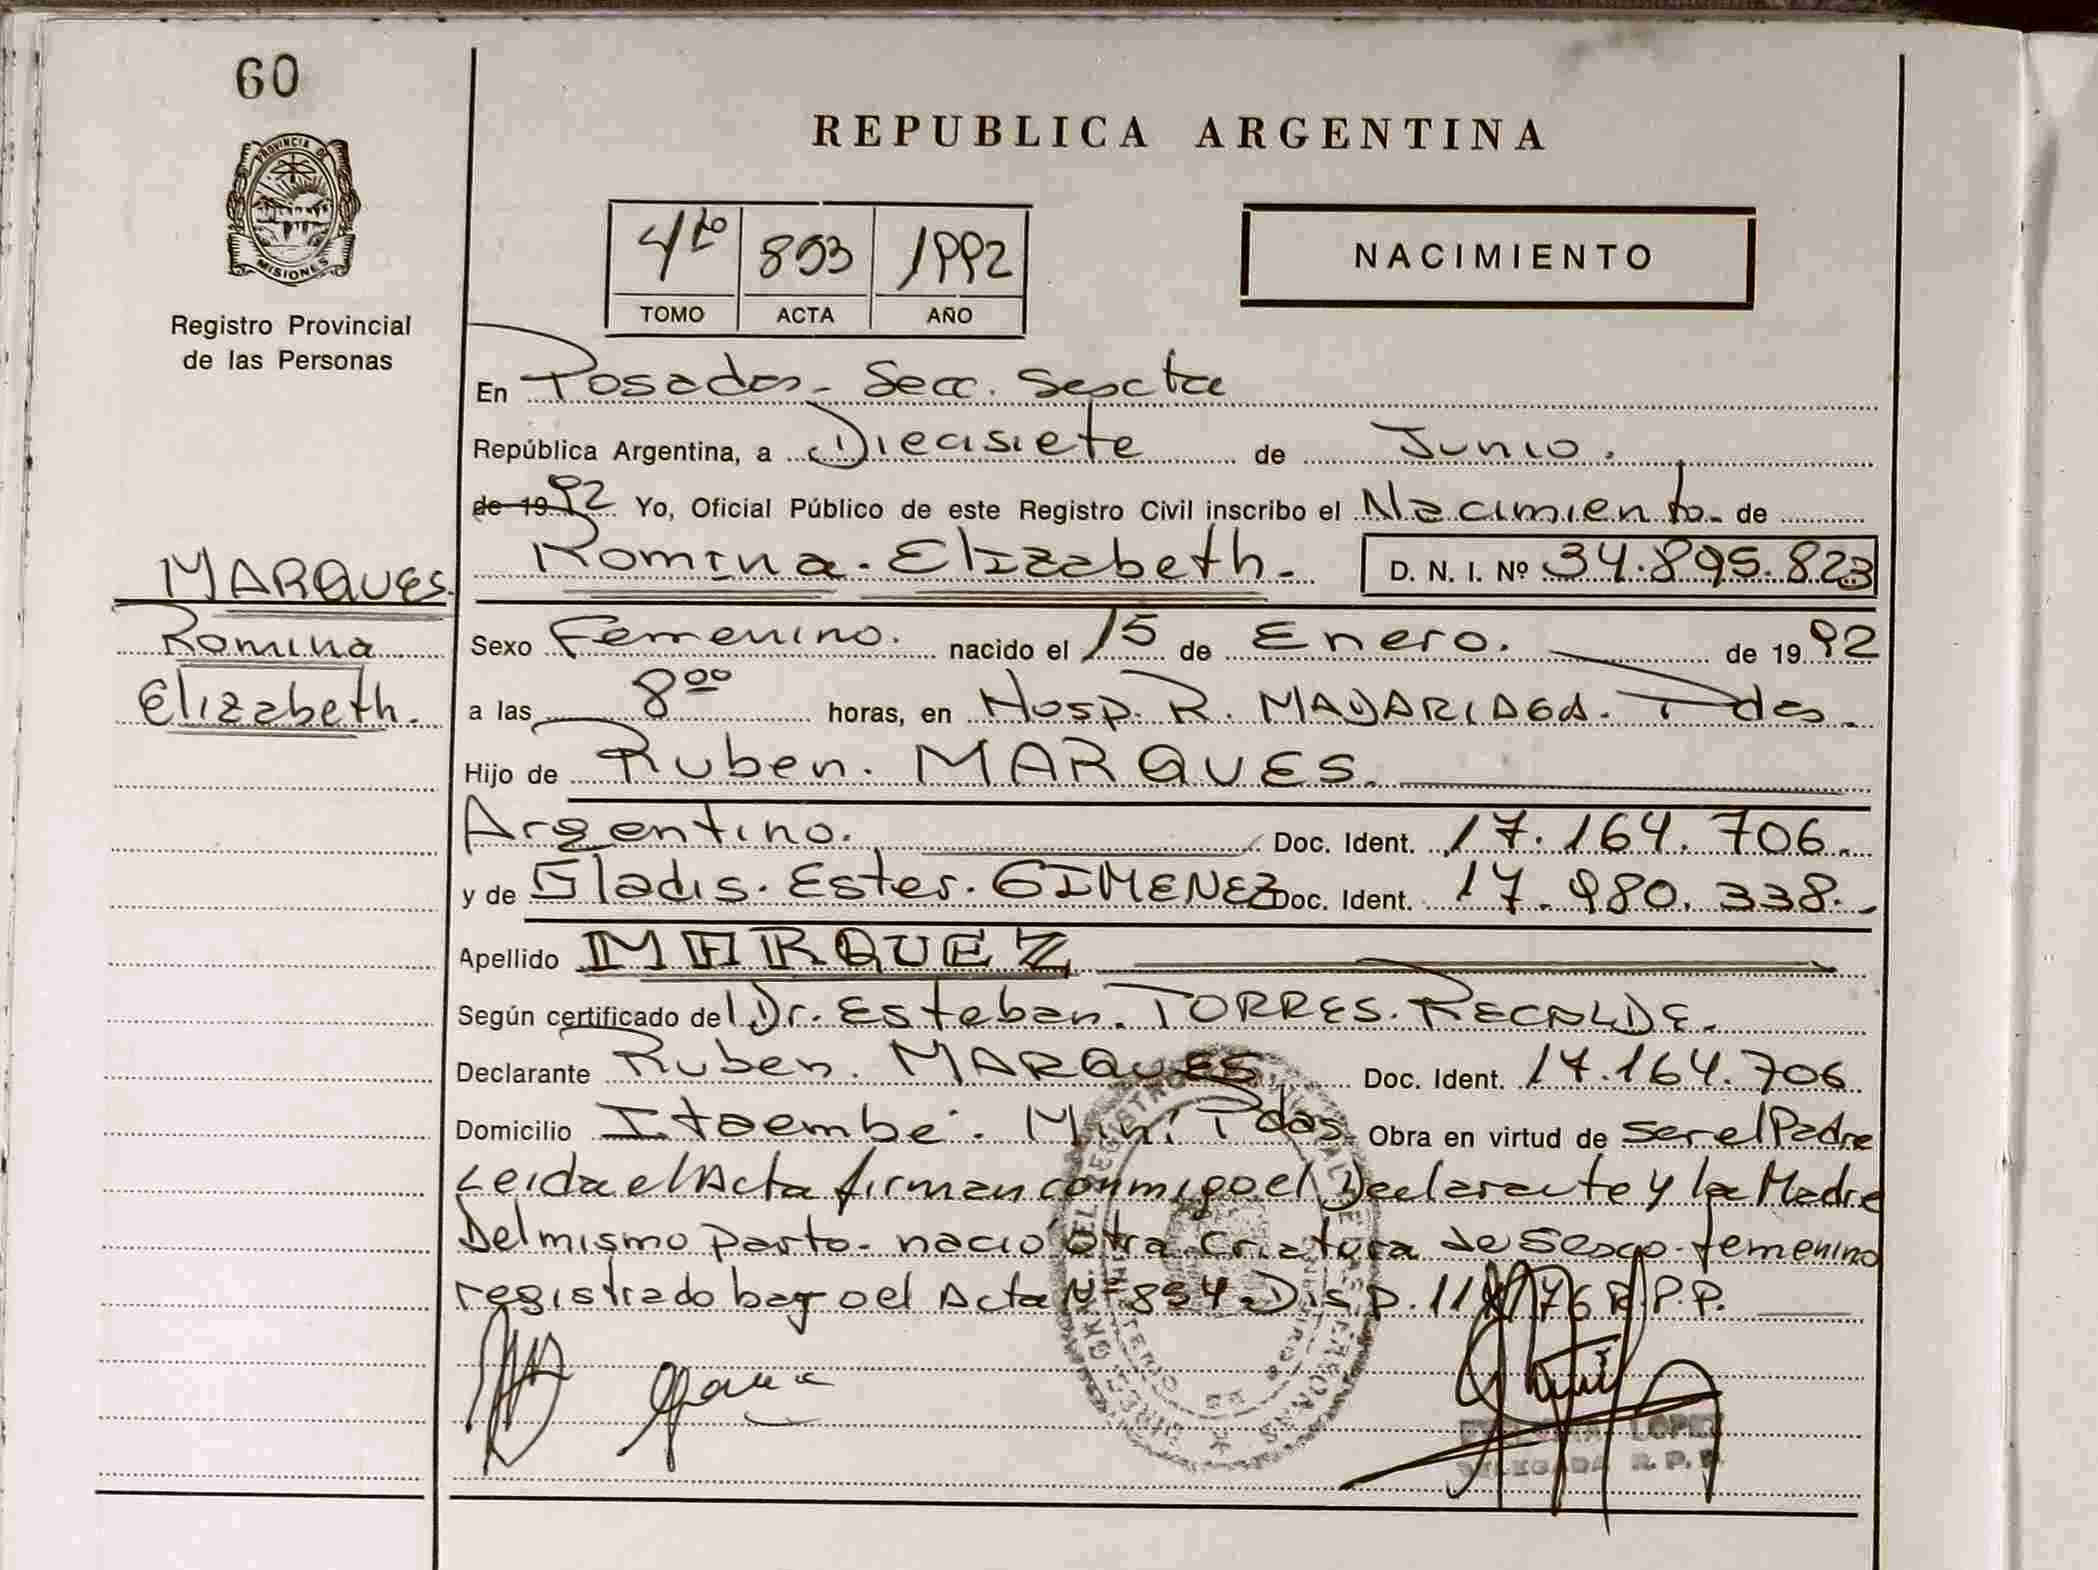 60
PROVINCIA DE
MISIONES
Registro Provincial
de las Personas
MARQUES.
Romina
Elizabeth.
REPUBLICA ARGENTINA
4to 893 1992
TOMO ACTA AÑO
NACIMIENTO
En Posadas - Secc. Sexta
República Argentina, a Diecisiete de Junio.
de 1992 Yo, Oficial Público de este Registro Civil inscribo el Nacimiento de
Romina. Elizabeth. D. N. I. Nº 34.895.823
Sexo Femenino. nacido el 15 de Enero. de 1992
a las 8 00 horas, en Hosp. R. MADARIAGA. Pdas.
Hijo de Ruben. MARQUES.
Argentino. Doc. Ident. 17.164.706.
y de Gladis. Ester. GIMENEZ Doc. Ident. 17.980.338.
Apellido MARQUEZ
Según certificado del Dr. Esteban. TORRES. RECALDE.
Declarante Ruben. MARQUES. Doc. Ident. 17.164.706
Domicilio Itaembé. Miní Pdas. Obra en virtud de ser el Padre
Leida el Acta firman conmigo el Declarante y la Madre
Del mismo parto. nació otra criatura de Sexo femenino
registrado bajo el Acta Nº 894. Disp. 118/76 R.P.P.
LOPEZ
DELEGADA R. P. P.